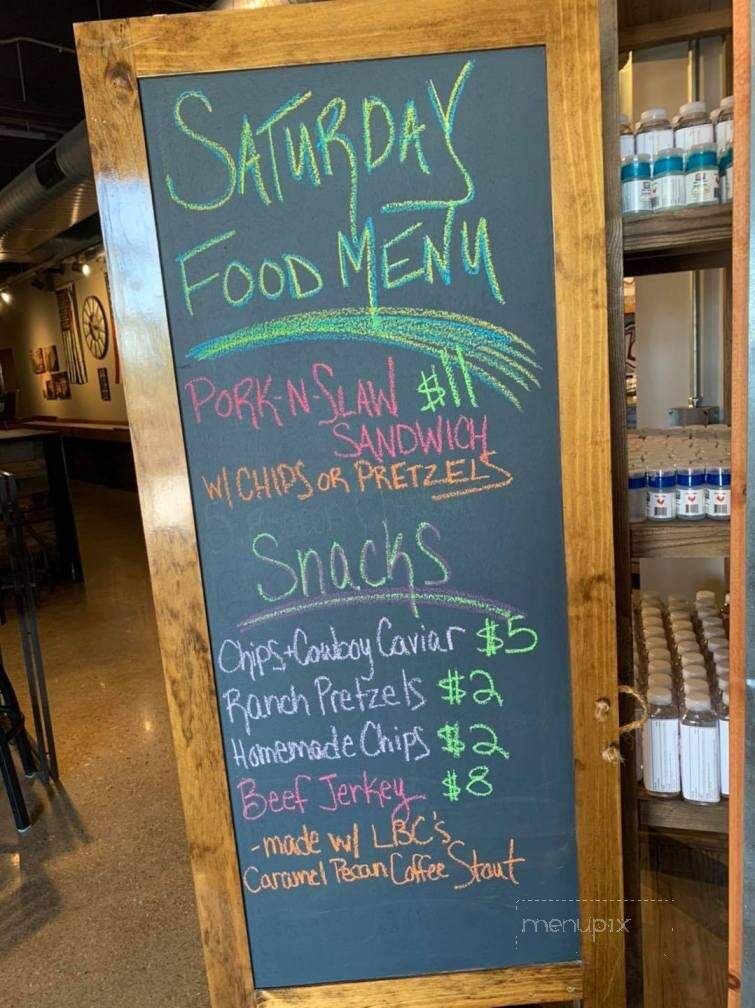 SATURDAY
FOOD MENU
PORK-N-SLAW $11
SANDWICH
W/ CHIPS OR PRETZELS
Snacks
Chips+Cowboy Caviar $5
Ranch Pretzels $2
Homemade Chips $2
Beef Jerkey $8
-made w/ LBC's
Caramel Pecan Coffee Stout
menupix